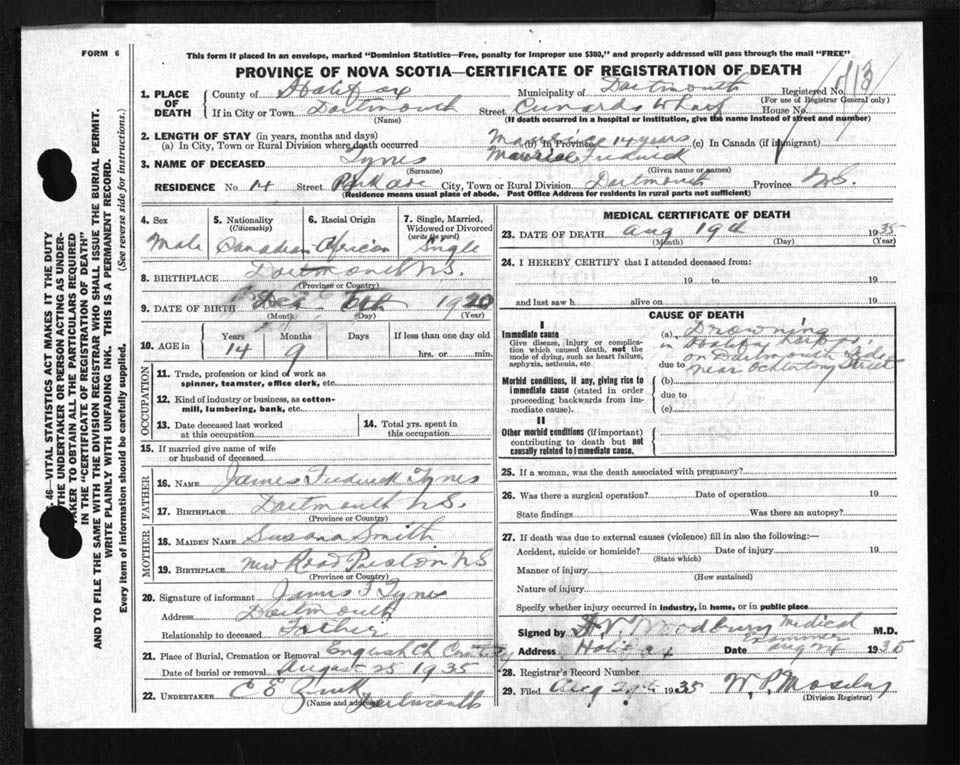 FORM 6
This form if placed in an envelope, marked "Dominion Statistics—Free, penalty for improper use $300," and properly addressed will pass through the mail "FREE"
PROVINCE OF NOVA SCOTIA—CERTIFICATE OF REGISTRATION OF DEATH
1. PLACE OF DEATH
County of Halifax Municipality of Dartmouth Registered No.
(For use of Registrar General only)
If in City or Town Dartmouth Street Cunards Wharf House No.
(Name) (If death occurred in a hospital or institution, give the name instead of street and number)
2. LENGTH OF STAY (in years, months and days)
(a) In City, Town or Rural Division where death occurred (b) In Province 14 years (c) In Canada (if immigrant)
3. NAME OF DECEASED Tynes Maurice Frederick
(Surname) (Given name or names)
RESIDENCE No. 14 Street City, Town or Rural Division Dartmouth Province N.S.
(Residence means usual place of abode. Post Office Address for residents in rural parts not sufficient)
4. Sex
Male
5. Nationality
(Citizenship)
Canadian
6. Racial Origin
African
7. Single, Married,
Widowed or Divorced
(write the word)
Single
8. BIRTHPLACE Dartmouth N.S.
(Province or Country)
9. DATE OF BIRTH Dec 1920
(Month) (Day) (Year)
10. AGE in
Years Months Days If less than one day old
14 9 hrs. or min.
OCCUPATION
11. Trade, profession or kind of work as
spinner, teamster, office clerk, etc.
12. Kind of industry or business, as cotton-
mill, lumbering, bank, etc.
13. Date deceased last worked
at this occupation
14. Total yrs. spent in
this occupation
15. If married give name of wife
or husband of deceased
FATHER
16. NAME James Frederick Tynes
17. BIRTHPLACE Dartmouth N.S.
(Province or Country)
MOTHER
18. MAIDEN NAME Susana Smith
19. BIRTHPLACE New Road Preston N S
(Province or Country)
20. Signature of informant James F Tynes
Address Dartmouth
Relationship to deceased Father
21. Place of Burial, Cremation or Removal English Ch
Date of burial or removal August 25 1935
22. UNDERTAKER C E
(Name and address) Dartmouth
MEDICAL CERTIFICATE OF DEATH
23. DATE OF DEATH Aug 19th 1935
(Month) (Day) (Year)
24. I HEREBY CERTIFY that I attended deceased from:
19 to 19
and last saw h alive on 19
CAUSE OF DEATH
I
Immediate cause
Give disease, injury or complica-
tion which caused death, not the
mode of dying, such as heart failure,
asphyxia, asthenia, etc
(a) Drowning
in Halifax
on Dartmouth Side
due to near Ochterlony Street
Morbid conditions, if any, giving rise to
immediate cause (stated in order
proceeding backwards from im-
mediate cause).
(b)
due to
(c)
II
Other morbid conditions (if important)
contributing to death but not
causally related to immediate cause.
25. If a woman, was the death associated with pregnancy?
26. Was there a surgical operation? Date of operation 19
State findings Was there an autopsy?
27. If death was due to external causes (violence) fill in also the following:—
Accident, suicide or homicide? Date of injury 19
(State which)
Manner of injury
(How sustained)
Nature of injury
Specify whether injury occurred in industry, in home, or in public place
Signed by Woodbury Medical Examiner M.D.
Address Date Aug 24 1935
28. Registrar's Record Number
29. Filed Aug 1935 W. P. Moseley
(Division Registrar)
46—VITAL STATISTICS ACT MAKES IT THE DUTY
THE UNDERTAKER OR PERSON ACTING AS UNDER-
TAKER TO OBTAIN ALL THE PARTICULARS REQUIRED
IN THE "CERTIFICATE OF REGISTRATION OF DEATH"
AND TO FILE THE SAME WITH THE DIVISION REGISTRAR WHO SHALL ISSUE THE BURIAL PERMIT.
WRITE PLAINLY WITH UNFADING INK. THIS IS A PERMANENT RECORD.
Every item of information should be carefully supplied. (See reverse side for instructions.)